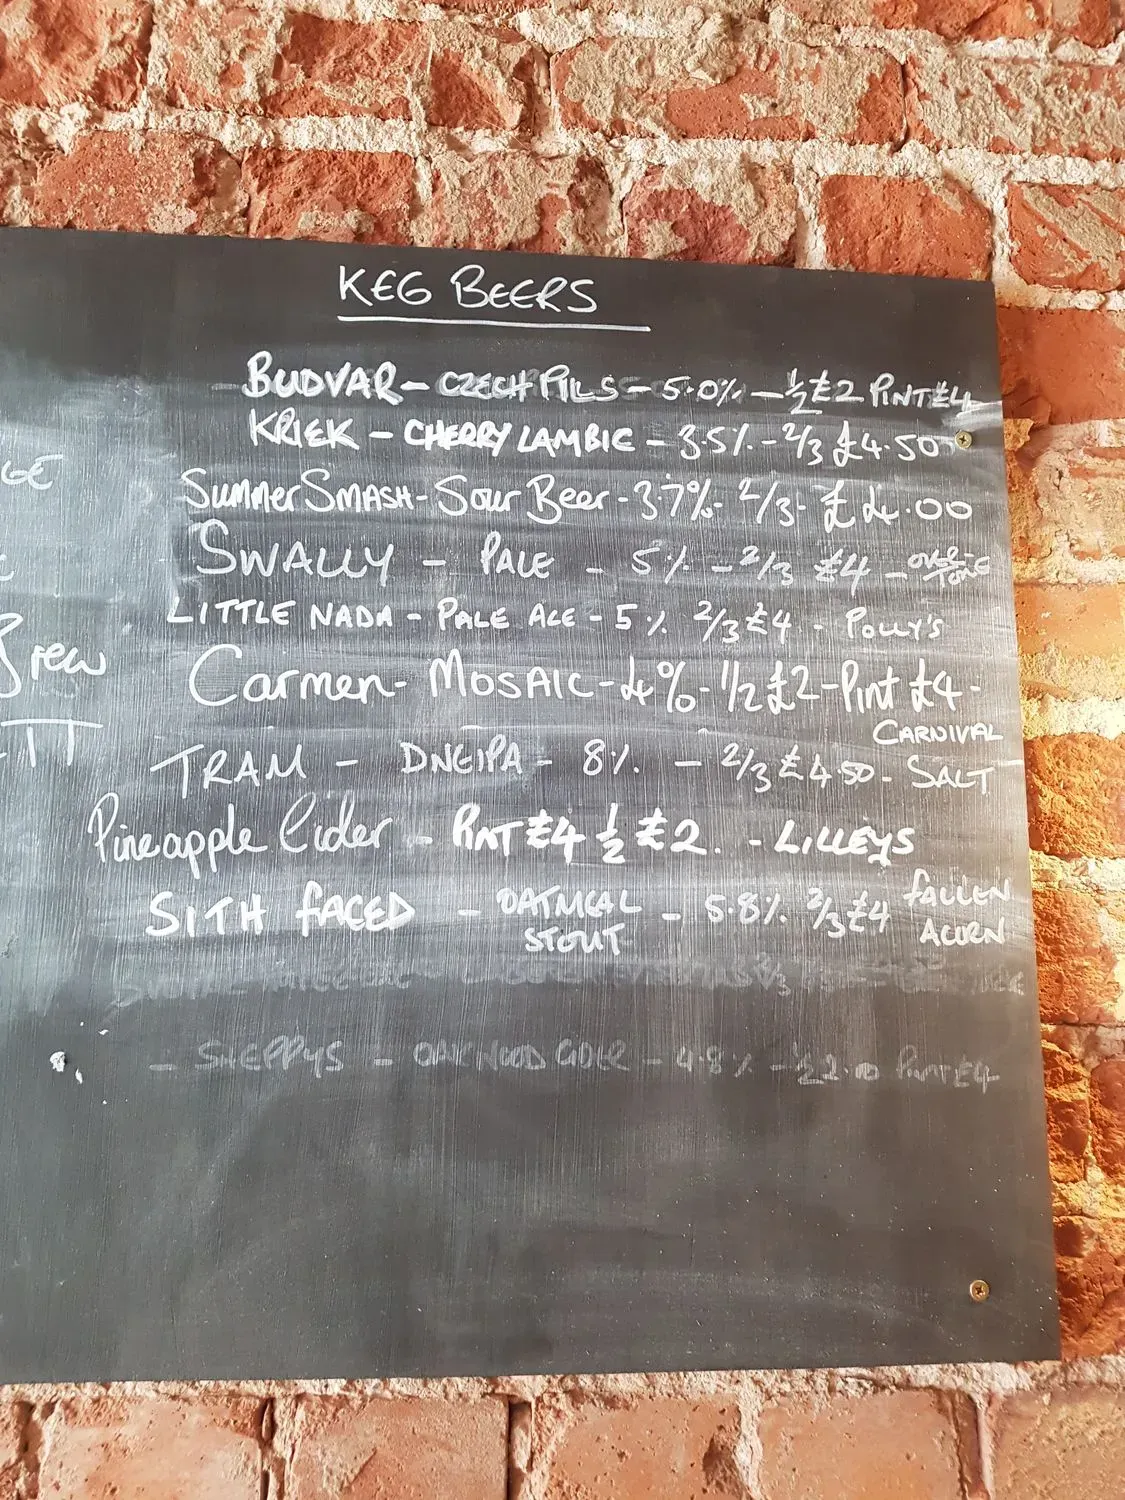 KEG BEERS
BUDVAR - CZECH PILS - 5.0% - ½ £2 PINT £4
KRIEK - CHERRY LAMBIC - 3.5% - 2/3 £4.50
Summer SMASH - Sour Beer - 3.7% - 2/3 - £4.00
SWALLY - PALE - 5% - 2/3 £4 - OVERTONE
LITTLE NADA - PALE ALE - 5% 2/3 £4 - POLLY'S
Carmen - MOSAIC - 4% - 1/2 £2 - Pint £4 -
CARNIVAL
TRAM - DNEIPA - 8% - 2/3 £4.50 - SALT
Pineapple Cider - PINT £4 ½ £2. - LILLEYS
SITH FACED - OATMEAL STOUT - 5.8% 2/3 £4 FALLEN ACORN
- SHEPPYS - OAKWOOD CIDER - 4.8% - ½ 2.10 PINT £4
GE
Brew
TT